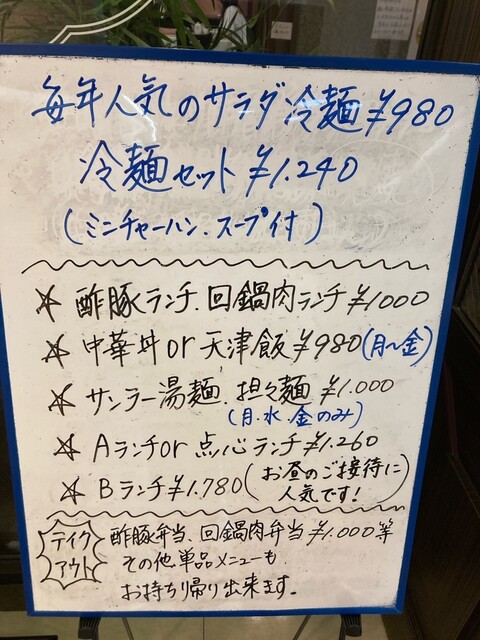 毎年人気のサラダ冷麺¥980
冷麺セット¥1.240
(ミニチャーハン.スープ付)
☆ 酢豚ランチ.回鍋肉ランチ¥1000
☆ 中華丼or天津飯¥980(月〜金)
☆ サンラー湯麺.担々麺¥1.000
(月.水.金のみ)
☆ Aランチor点心ランチ¥1.260
☆ Bランチ¥1.780(お昼のご接待に
人気です!)
テイク
アウト
酢豚弁当.回鍋肉弁当¥1.000等
その他単品メニューも
お持ち帰り出来ます.